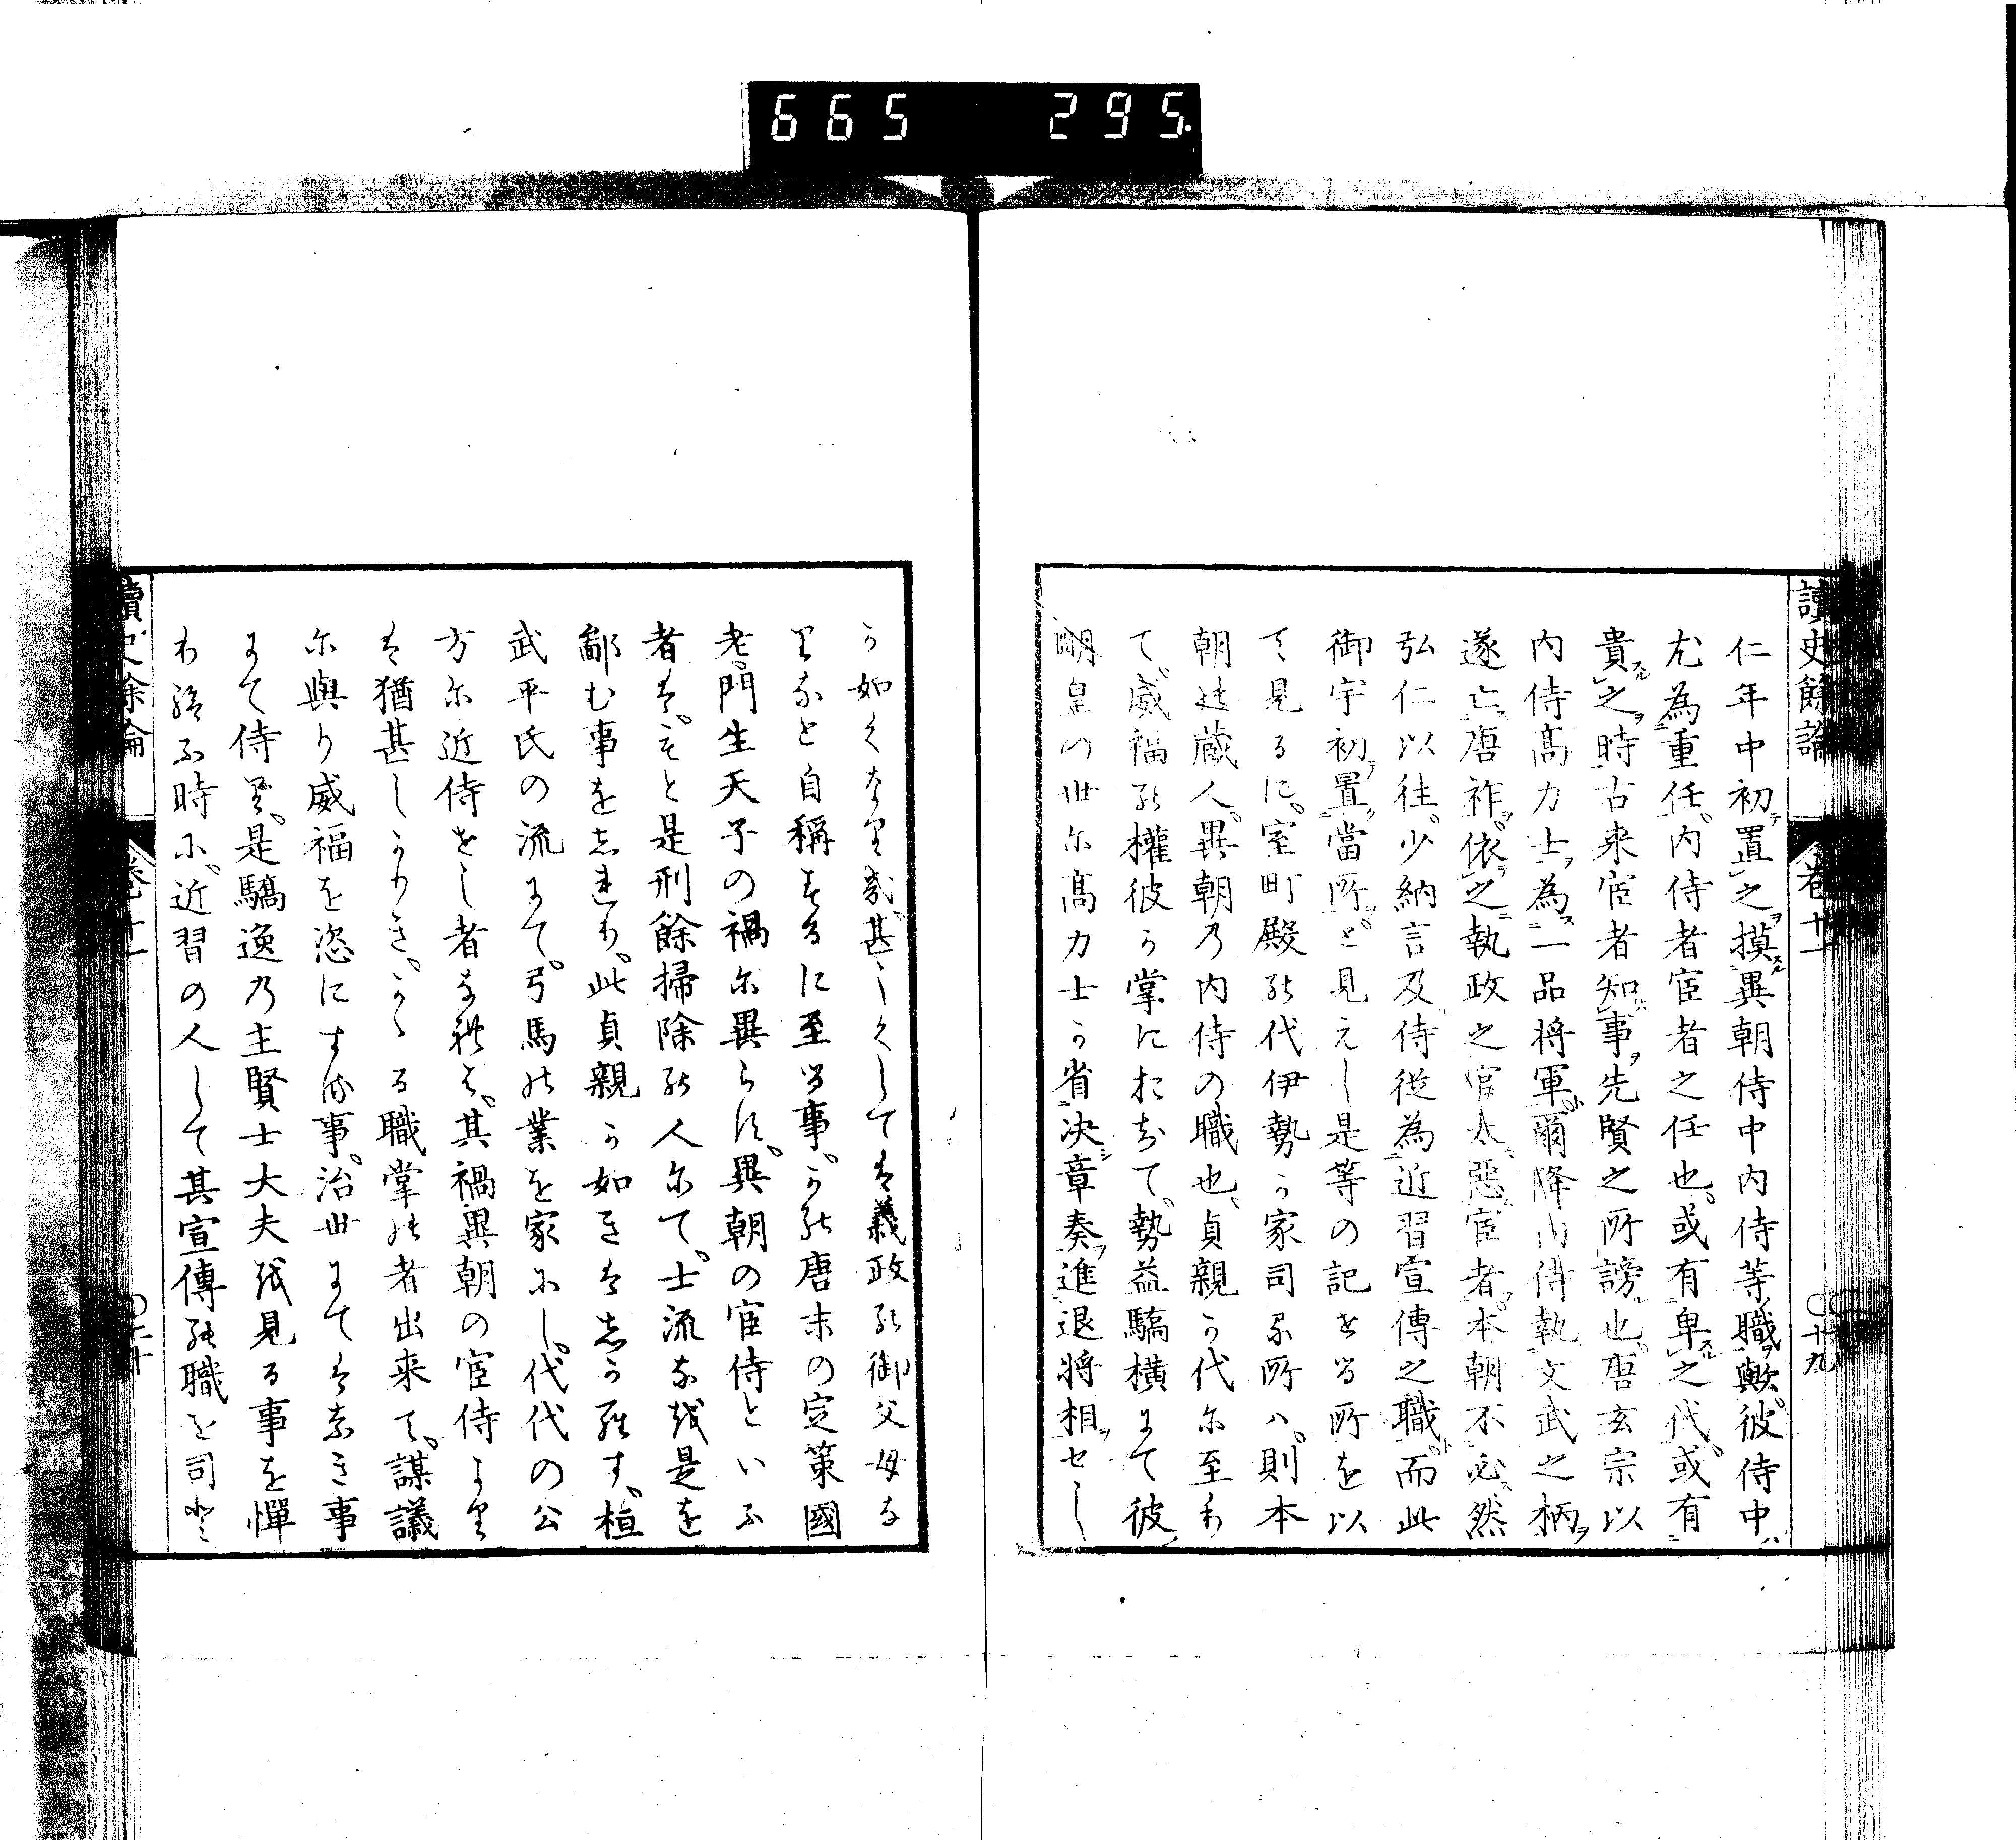 665 295
讀史餘論 卷十一 〇十九
仁年中初置之摸異朝侍中内侍等職歟彼侍中
尤為重任内侍者宦者之任也或有卑之代或有
貴之時古来宦者知事先賢之所謗也唐玄宗以
内侍髙力士為一品将軍爾降内侍執文武之柄
遂亡唐祚依之執政之官太惡宦者本朝不必然
弘仁以往少納言及侍従為近習宣傳之職而此
御宇初置當所ど見えし是等の記せる所を以
て見るに室町殿の代伊勢か家司る所ハ則本
朝の蔵人異朝乃内侍の職也貞親か代尓至り
て威福の權彼か掌におちて勢益驕横にて彼
明皇の世尓髙力士か省决章奏進退将相せし
か如くなり哉甚しくして者義政の御父母な
りなと自稱するに至る事かの唐末の定策國
老門生天子の禍尓異らす異朝の宦侍といふ
者はもと是刑餘掃除の人尓て士流なを是を
鄙む事をしれり此貞親か如きはしからす桓
武平氏の流にて弓馬の業を家にし代代の公
方尓近侍せし者なれは其禍異朝の宦侍より
は猶甚しかりきかゝる職掌の者出来て謀議
尓與り威福を恣にする事治世にてはなき事
にて侍り是驕逸乃主賢士大夫を見る事を憚
り給ふ時に近習の人して其宣傳の職を司と
讀史餘論 卷十一 〇二十